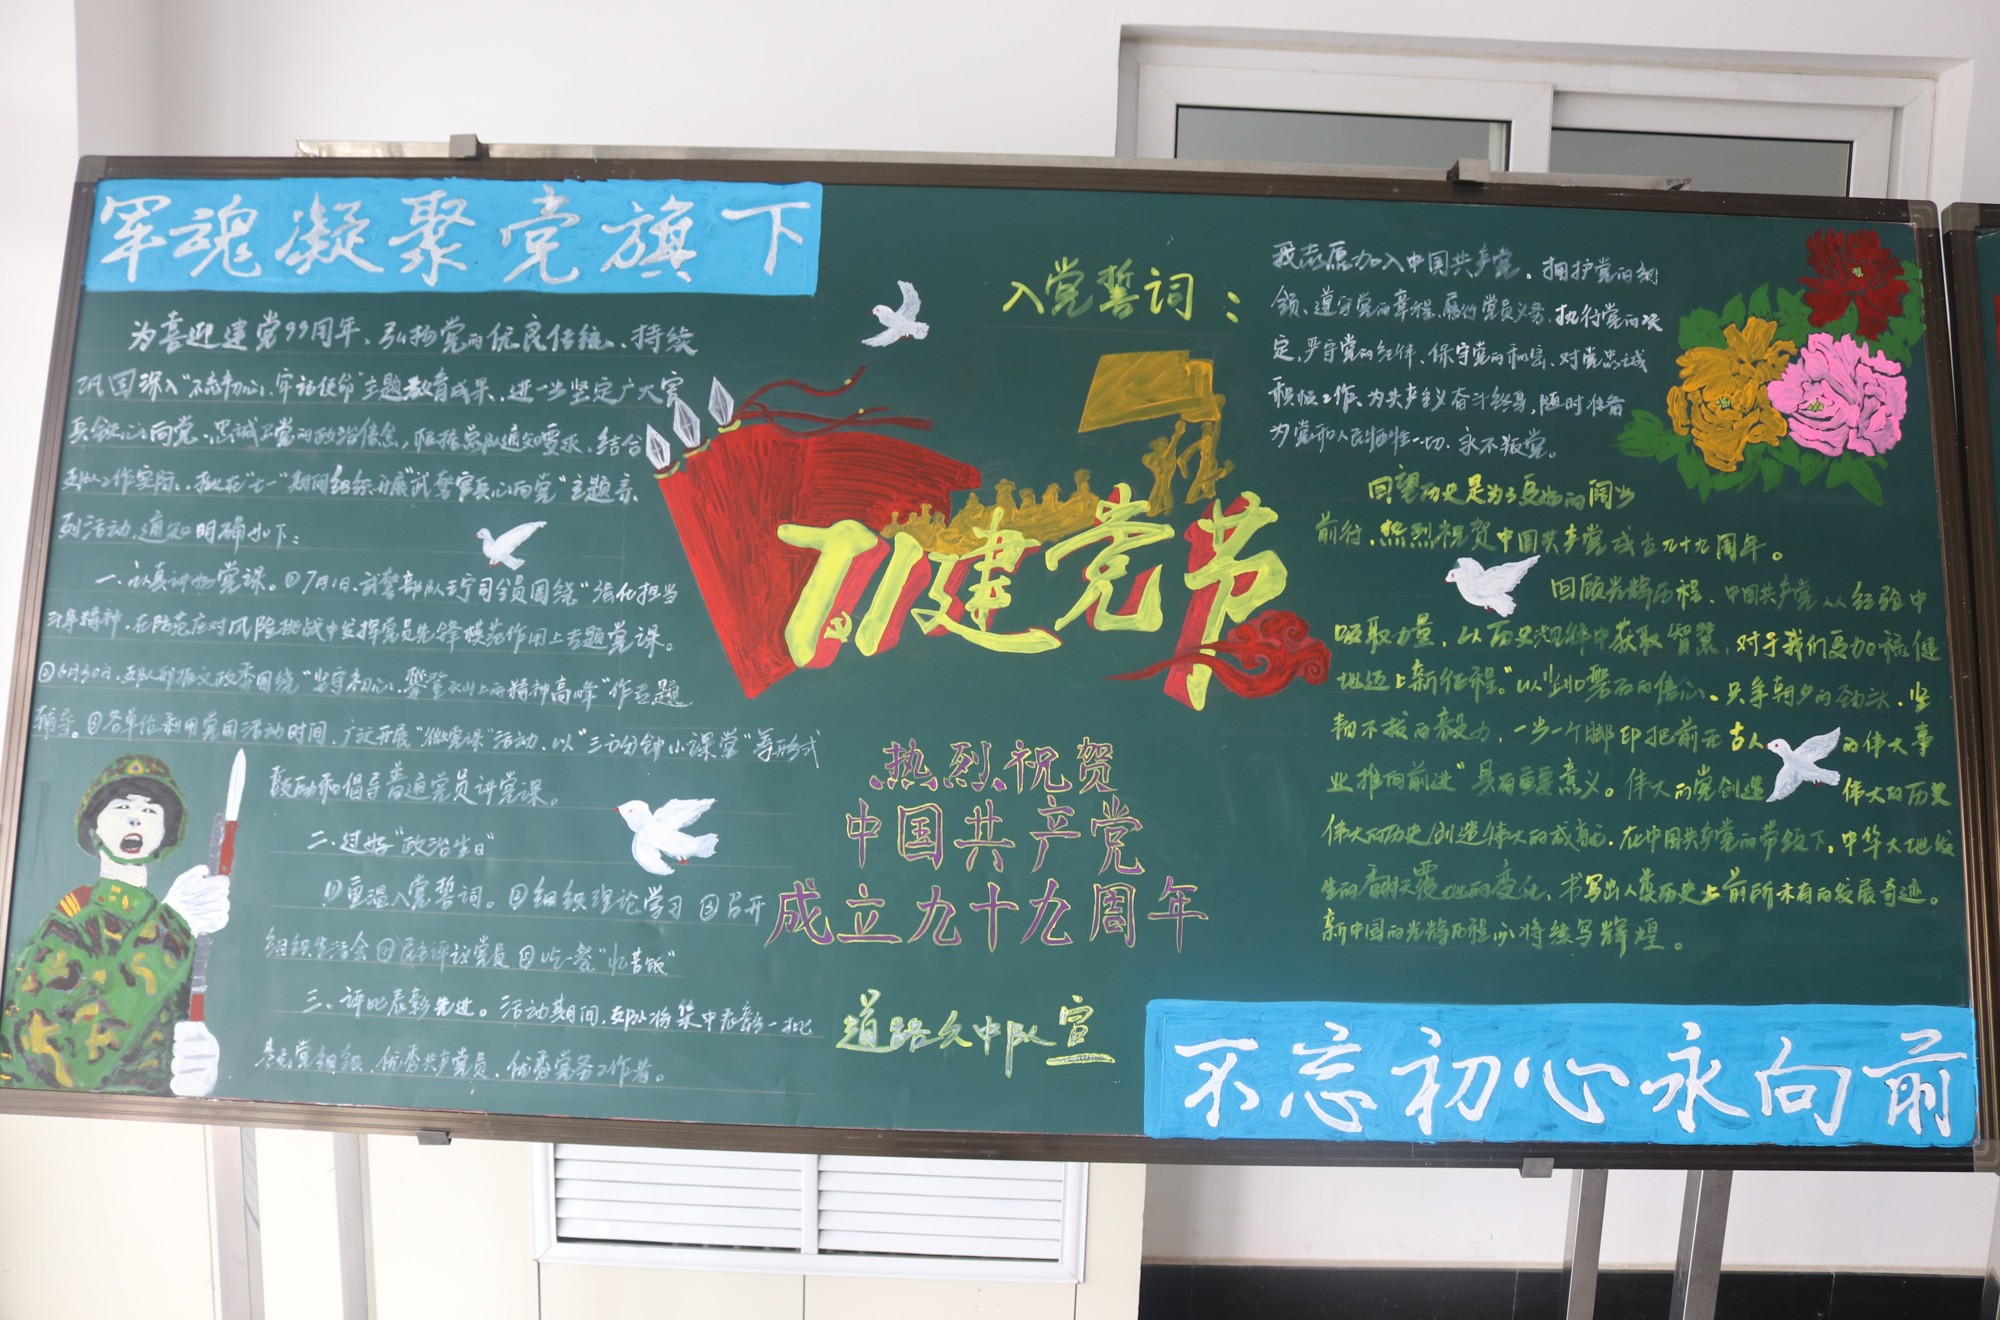 军魂凝聚党旗下
为喜迎建党99周年、弘扬党的优良传统、持续
巩固深入"不忘初心、牢记使命"主题教育成果，进一步坚定广大官
兵铁心向党、忠诚卫党的政治信念，根据总队通知要求，结合
支队工作实际，拟在"七一"期间组织开展"武警官兵心向党"主题系
列活动，通知明确如下：
一、认真讲好党课。①7月1日，武警部队王宁司令员围绕"强化担当
斗争精神，在防范应对风险挑战中发挥党员先锋模范作用上专题党课。
②6月30日，支队邢振文政委围绕"坚守初心，攀登永山上的精神高峰"作专题
辅导。③各单位利用党团活动时间，广泛开展"微党课"活动，以"三百分钟小课堂"等形式
鼓励和倡导普通党员讲党课。
二、过好"政治生日"
①重温入党誓词。②组织理论学习 ③召开
组织生活会 ④民主评议党员 ⑤吃一餐"忆苦饭"
三、评比表彰先进。活动期间，支队将集中表彰一批
先进党组织、优秀共产党员，优秀党务工作者。
入党誓词：
71建党节
热烈祝贺
中国共产党
成立九十九周年
道路久中队宣
我志愿加入中国共产党，拥护党的纲
领、遵守党的章程、履行党员义务、执行党的决
定，严守党的纪律、保守党的秘密、对党忠诚
积极工作、为共产主义奋斗终身，随时准备
为党和人民牺牲一切、永不叛党。
回望历史是为了更好的阔步
前行，热烈祝贺中国共产党成立九十九周年。
回顾光辉历程，中国共产党从经验中
吸取力量，从历史规律中获取智慧，对于我们更加稳健
地迈上新征程。"以坚如磐石的信心、只争朝夕的劲头、坚
韧不拔的毅力，一步一个脚印把前无古人的伟大事
业推向前进"具有重要意义。伟大的党创造伟大的历史
伟大的历史创造伟大的成就，在中国共产党的带领下，中华大地发
生的翻天覆地的变化，书写出人类历史上前所未有的发展奇迹。
新中国的光辉历程必将续写辉煌。
不忘初心永向前